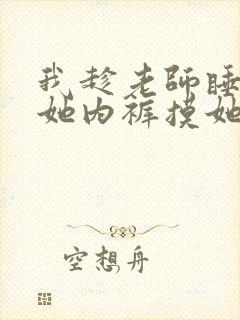 我趁老師睡
她内裤摸她
空想舟